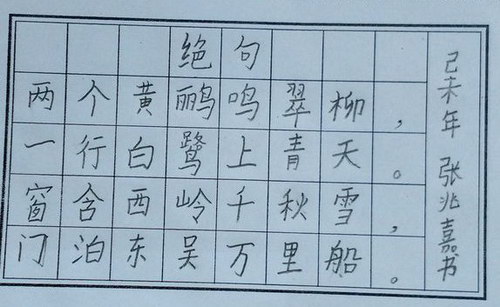 绝句
两个黄鹂鸣翠柳，
一行白鹭上青天。
窗含西岭千秋雪，
门泊东吴万里船。
己未年 张兆嘉书